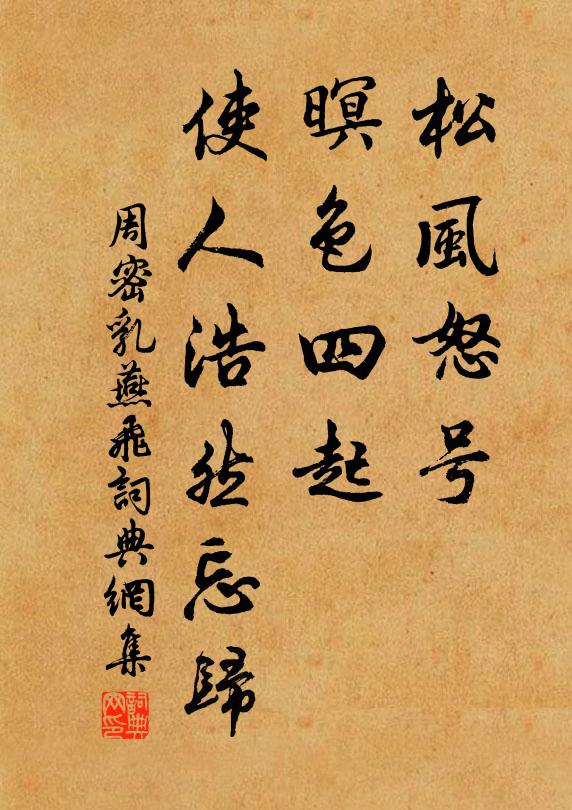 松風怒号
暝色四起
使人浩然忘歸
周密乳燕飛詞典網集
詞典網印